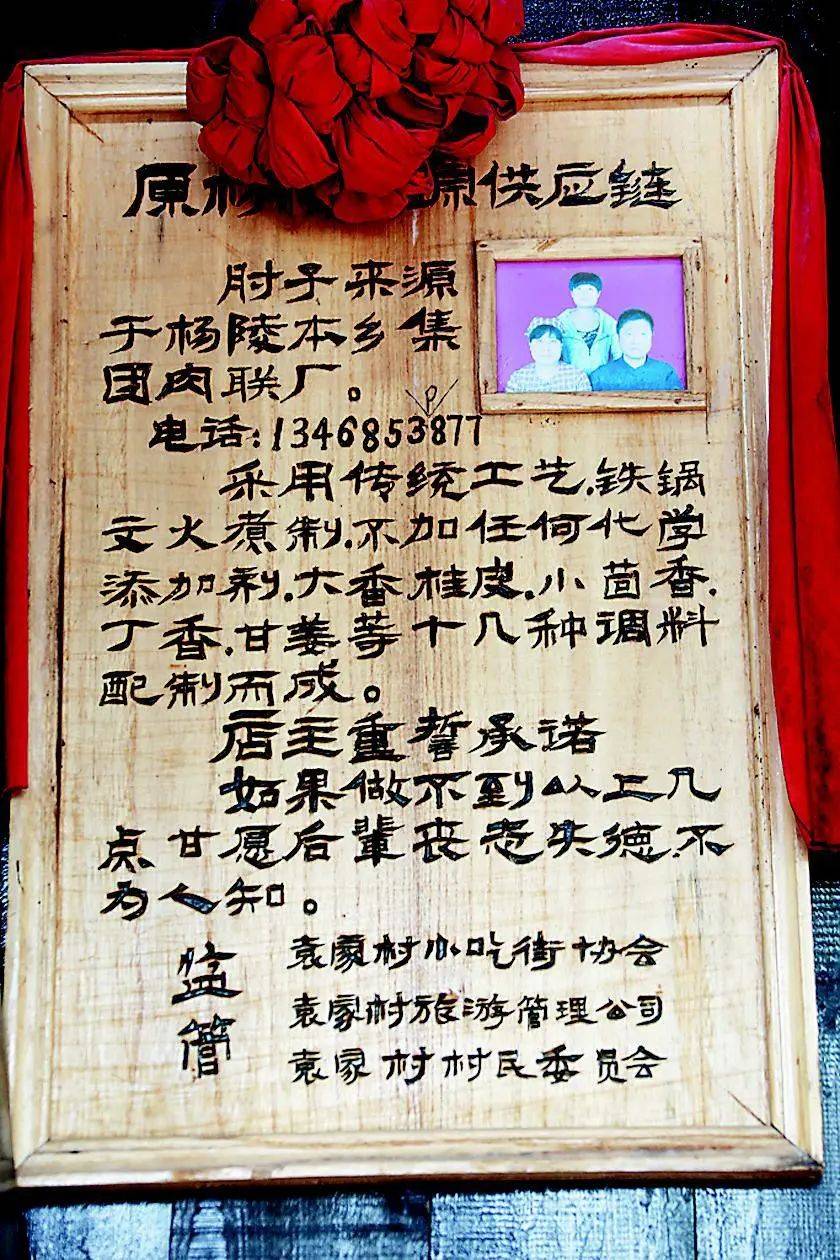 原材 源供应链
肘子来源
于杨陵本乡集
团肉联厂。
电话:13468538777
采用传统工艺.铁锅
文火煮制.不加任何化学
添加剂.大香桂皮.小茴香.
丁香.甘姜等十几种调料
配制而成。
店主重誓承诺
如果做不到以上几
点甘愿后辈丧志失德.不
为人知。
监管
袁家村小吃街协会
袁家村旅游管理公司
袁家村村民委员会